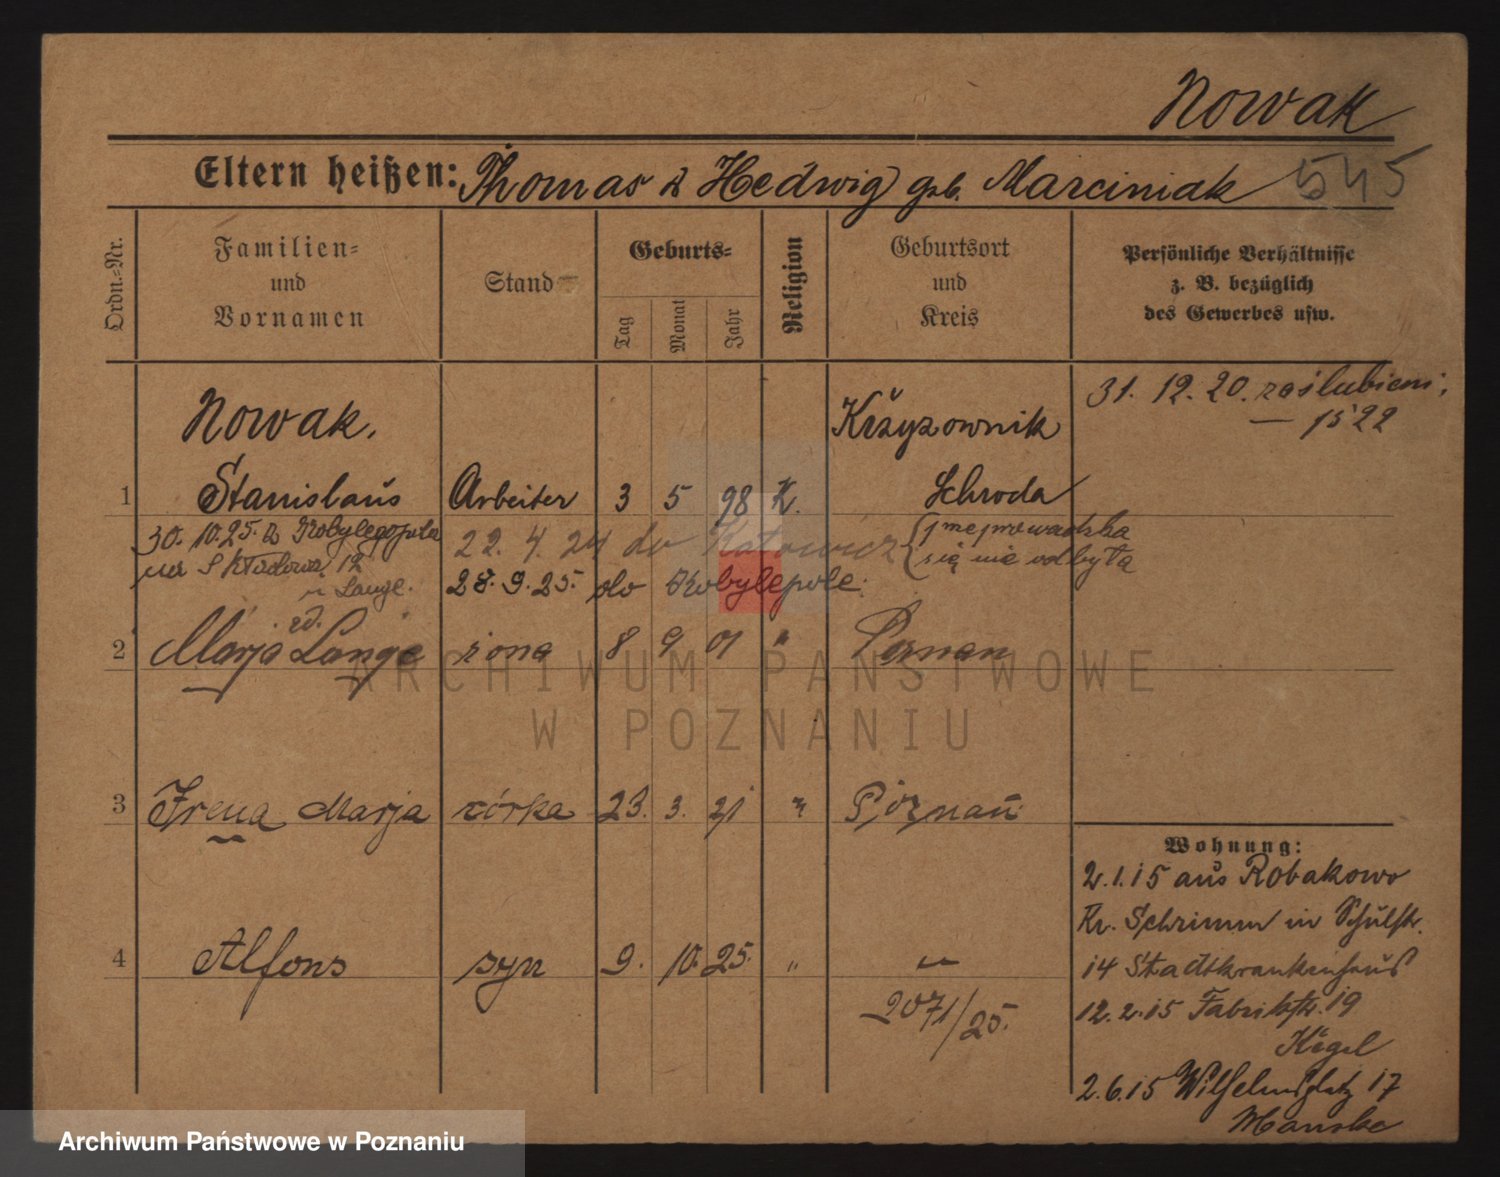 Nowak
Eltern heißen: Thomas & Hedwig geb. Marciniak 545
Ordn.-Nr.
Familien-
und
Vornamen
Stand
Geburts-
Tag
Monat
Jahr
Religion
Geburtsort
und
Kreis
Persönliche Verhältnisse
z. B. bezüglich
des Gewerbes usw.
31. 12. 20. zaślubieni
1522
Nowak. Kržyzownik
1 Stanislaus Arbeiter 3 5 98 K. Schroda
30. 10. 25. z Kobylegopola
na Składowa 12
Lange.
22. 4. 24 do Katowic
(przeprowadzka
się nie odbyła
28. 9. 25. do Kobylepole.
zd.
2 Marja Lange żona 8 9 01 " Posnan
3 Irena Marja córka 23. 3. 21 " Poznań
4 Alfons syn 9. 10. 25. " "
2071/25.
Wohnung:
2.1.15 aus Robakowo
Kr. Schrimm in Schulstr.
14 Stadtkrankenhaus
12.2.15 Fabrikstr. 19
Kegel
2.6.15 Wilhelmsplatz 17
Manske
ARCHIWUM PAŃSTWOWE
W POZNANIU
Archiwum Państwowe w Poznaniu